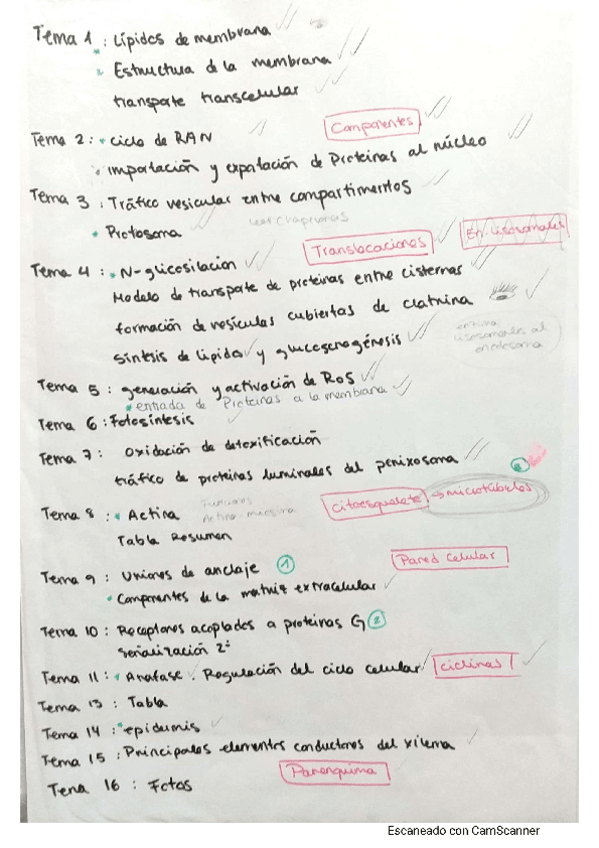 Tema 1 : Lípidos de membrana
Estructura de la membrana
transporte transcelular
Componentes
Tema 2 : ciclo de RAN
importación y exportación de Proteínas al núcleo
Tema 3 : Tráfico vesicular entre compartimentos
Protosoma
Translocaciones
En. lisosomales
Tema 4 : N-glicosilación
Modelo de transporte de proteínas entre cisternas
formación de vesículas cubiertas de clatrina
síntesis de Lípidos y glucogenogénesis
lisosomales al
endosoma
Tema 5 : generación y activación de ROS
entrada de Proteínas a la membrana
Tema 6 : Fotosíntesis
Tema 7 : Oxidación de detoxificación
tráfico de proteínas luminales del peroxisoma
Tema 8 : Actina
Funciones
Actina-miosina
citoesqueleto → microtúbulos
Tabla Resumen
Pared celular
Tema 9 : Uniones de anclaje 1
Componentes de la matriz extracelular
Tema 10 : Receptores acoplados a proteínas G 2
señalización Ca 2+
Tema 11 : Anafase . Regulación del ciclo celular ciclinas
Tema 13 : Tabla
Tema 14 : epidermis
Tema 15 : Principales elementos conductores del xilema
Parénquima
Tema 16 : Fotos
Escaneado con CamScanner